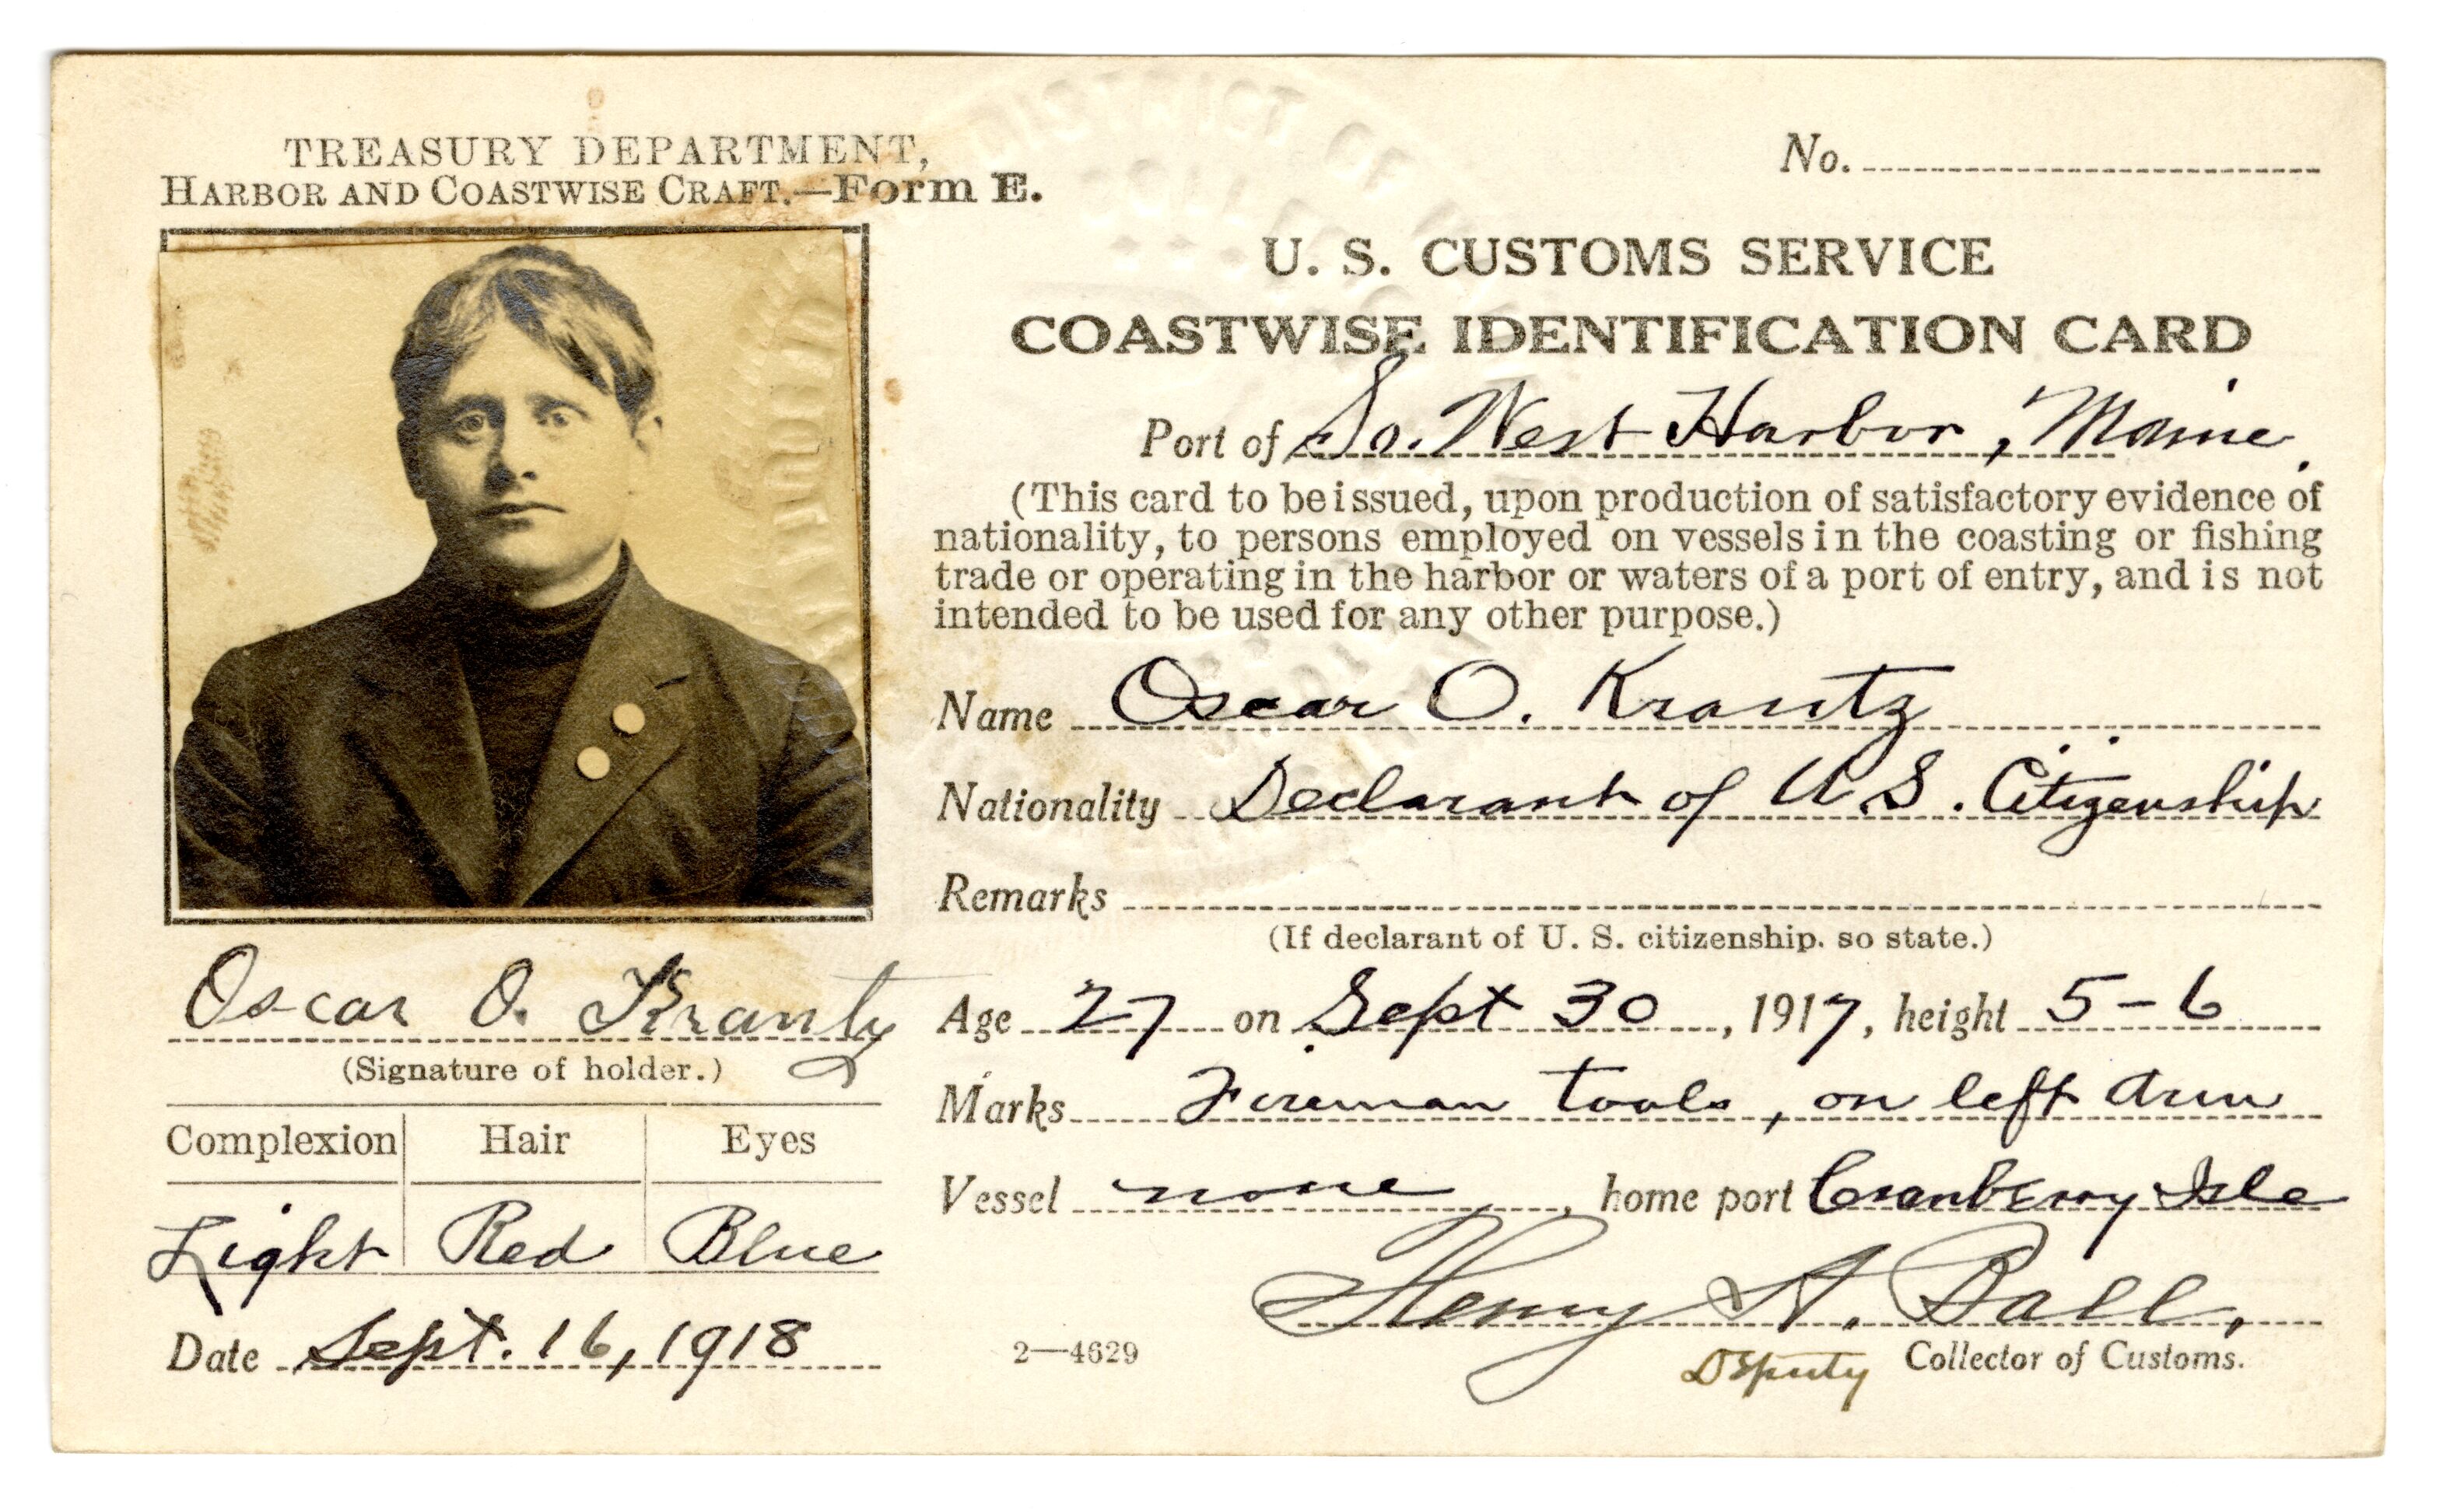 TREASURY DEPARTMENT,
HARBOR AND COASTWISE CRAFT.—Form E.
No.
U. S. CUSTOMS SERVICE
COASTWISE IDENTIFICATION CARD
Port of So. West Harbor, Maine.
(This card to be issued, upon production of satisfactory evidence of
nationality, to persons employed on vessels in the coasting or fishing
trade or operating in the harbor or waters of a port of entry, and is not
intended to be used for any other purpose.)
Name Oscar O. Krantz
Nationality Declarant of U.S. Citizenship
Remarks
(If declarant of U. S. citizenship, so state.)
Age 27 on Sept 30, 1917, height 5-6
Marks Foreman tools, on left arm
Vessel none, home port Cranberry Isle
Henry A. Ball,
Deputy Collector of Customs.
Oscar O. Krantz
(Signature of holder.)
Complexion Hair Eyes
Light Red Blue
Date Sept. 16, 1918
2—4629